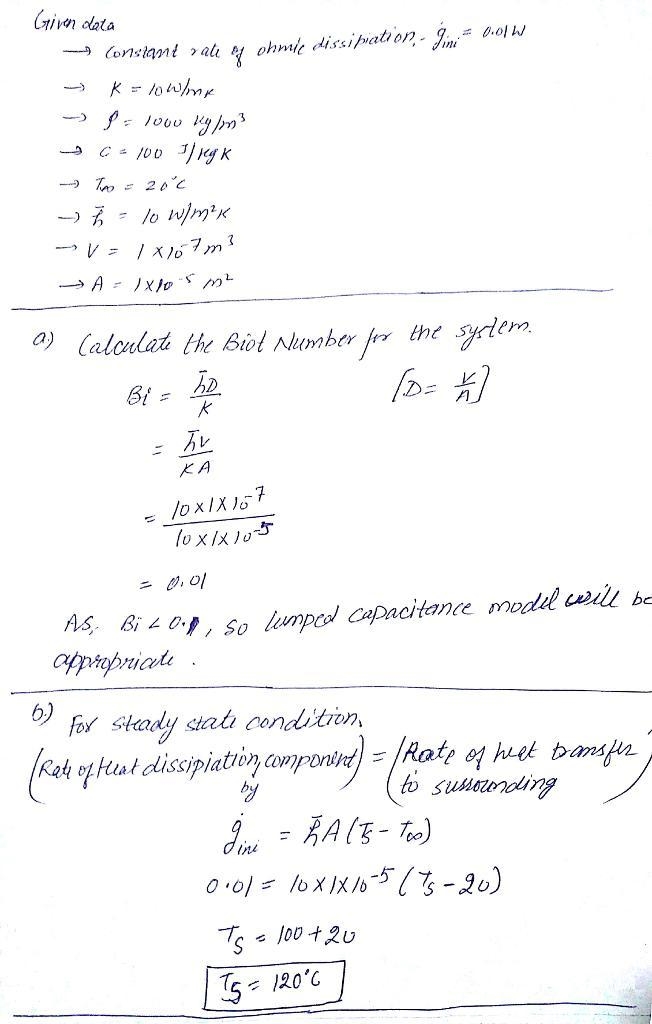 Given data
→ Constant rate of ohmic dissipiation, - ġini = 0.01W
→ K = 10w/mk
→ ρ = 1000 kg/m³
→ C = 100 J/kgK
→ T∞ = 20°C
→ h̄ = 10 W/m²K
→ V = 1 x 10⁻⁷ m³
→ A = 1x10⁻⁵ m²
a) Calculate the Biot Number for the system.
Bi = h̄D/K [D = V/A]
= h̄V/KA
= 10x1x10⁻⁷/10x1x10⁻⁵
= 0.01
AS, Bi < 0.1, so lumped capacitance model will be
appropriate.
b.) For steady state condition,
(Rate of Heat dissipiation by component) = (Rate of heat transfer to surrounding)
ġini = h̄A(Ts - T∞)
0.01 = 10x1x10⁻⁵ (Ts - 20)
Ts = 100 + 20
Ts = 120°C